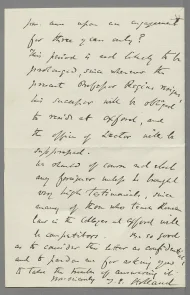 you once upon an engagement
for three years only?
This period is not likely to be
prolonged, since whenever the
present Professor Regius resigns
his successor will be obliged
to reside at Oxford, and
the office of Reader will be
suppressed.
We should of course not elect
any foreigner unless he brought
very high testimonials, since
many of those who teach Roman
Law in the Colleges at Oxford will
be competitors. Be so good
as to consider this letter as confidential
and to pardon me for asking you
to take the trouble of answering it.
T. E. Holland